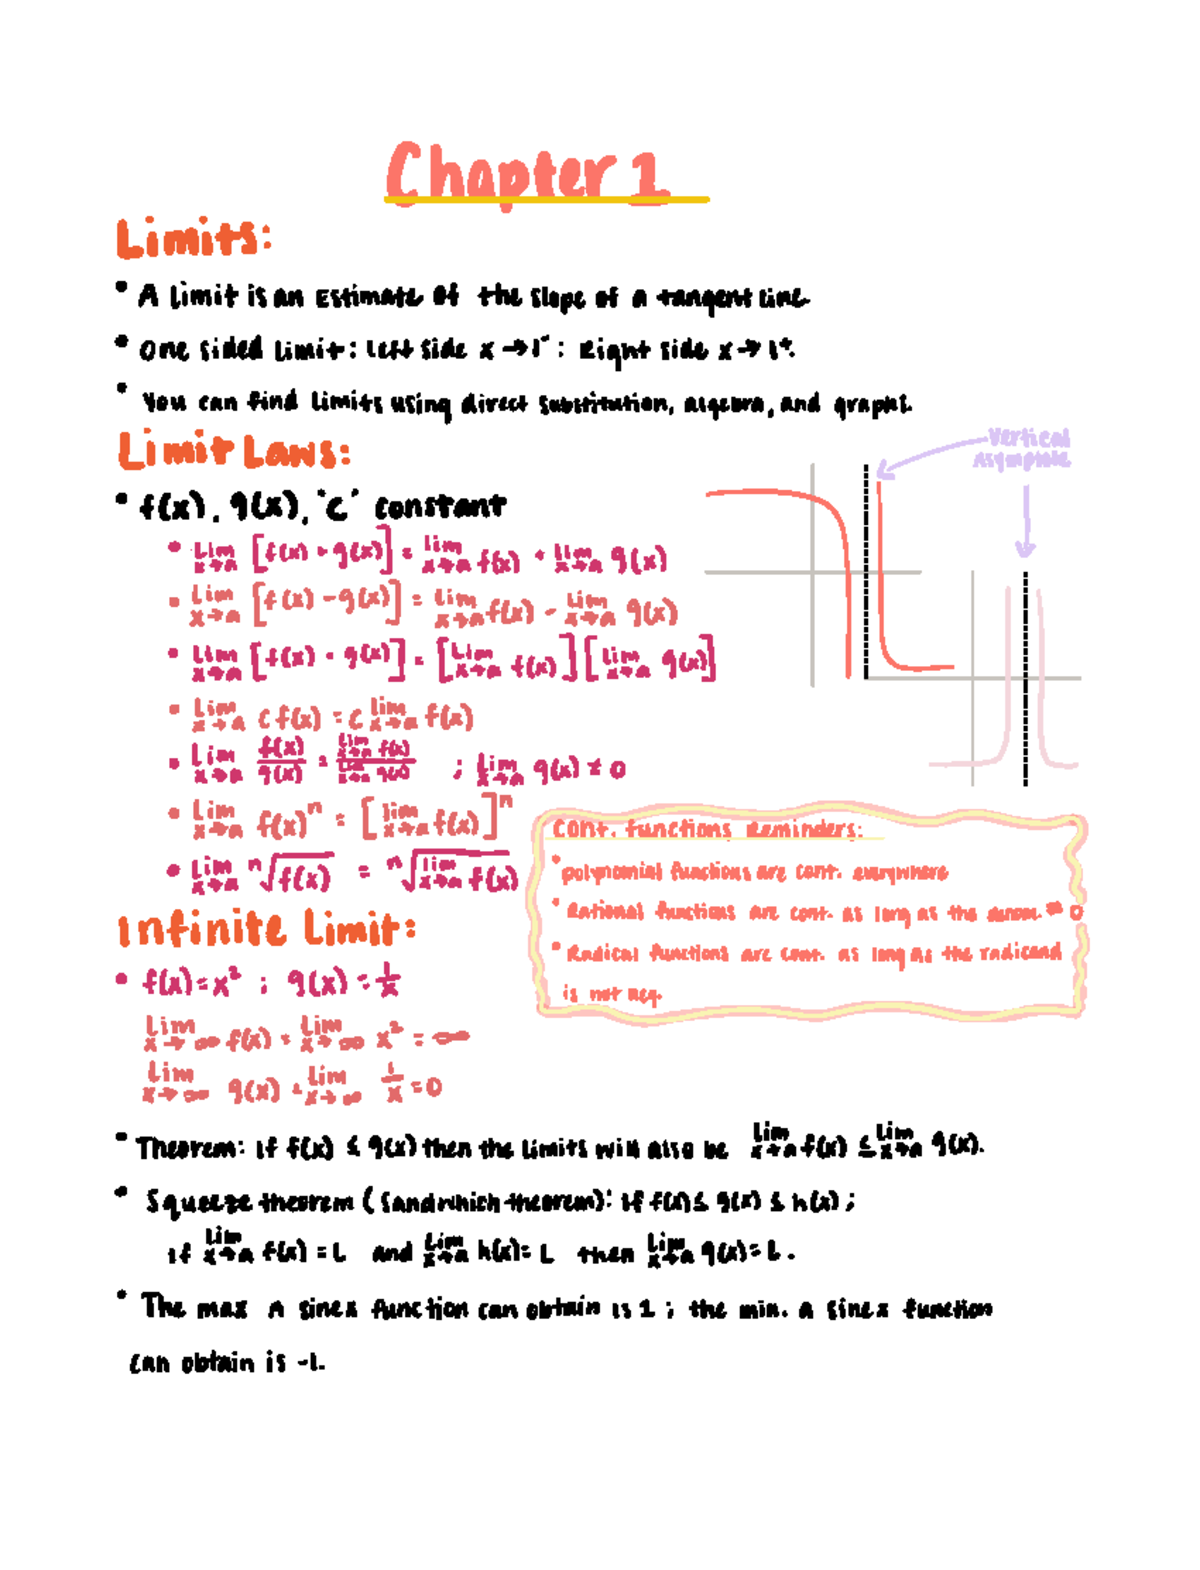 Chapter 1
Limits:
• A Limit is an Estimate of the slope of a tangent line
• One sided Limit: Left side x → 1⁻ : Right side x → 1⁺.
• You can find Limits using direct substitution, algebra, and graphs.
Limit Laws:
Vertical
Asymptote
• f(x), g(x), "c" constant
• Lim x→a [f(x) + g(x)] = lim x→a f(x) + lim x→a g(x)
• Lim x→a [f(x) - g(x)] = Lim x→a f(x) - Lim x→a g(x)
• Lim x→a [f(x) · g(x)] = [Lim x→a f(x)] [Lim x→a g(x)]
• Lim x→a c f(x) = c lim x→a f(x)
• Lim x→a f(x)/g(x) = Lim x→a f(x) / Lim x→a g(x) ; Lim x→a g(x) ≠ 0
• Lim x→a f(x)ⁿ = [lim x→a f(x)]ⁿ
• Lim x→a ⁿ√f(x) = ⁿ√lim x→a f(x)
Cont. functions Reminders:
• polynomial functions are cont. everywhere
• Rational functions are cont. as long as the denom. ≠ 0
• Radical functions are cont. as long as the radicand
is not neg.
Infinite Limit:
• f(x) = x² ; g(x) = 1/x
Lim x→∞ f(x) = Lim x→∞ x² = ∞
Lim x→∞ g(x) = Lim x→∞ 1/x = 0
• Theorem: if f(x) ≤ g(x) then the limits will also be Lim x→a f(x) ≤ Lim x→a g(x).
• Squeeze theorem (Sandwhich theorem): if f(x) ≤ g(x) ≤ h(x) ;
if Lim x→a f(x) = L and Lim x→a h(x) = L then Lim x→a g(x) = L.
• The max A sinex function can obtain is 1 ; the min. a sinex function
can obtain is -1.